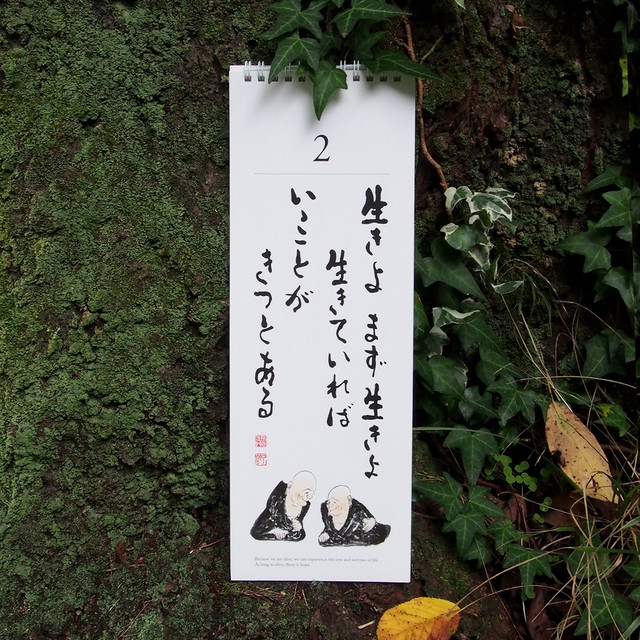 2
生きよ まず生きよ
生きていれば
いいことが
きっとある
Because we are alive, we can experience the joys and sorrows of life.
As long as alive, there is hope.